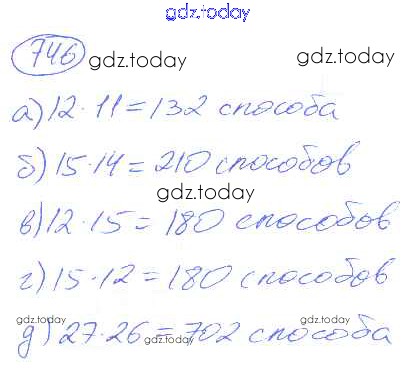 gdz.today
746 gdz.today gdz.today
а) 12 · 11 = 132 способа
gdz.today
б) 15 · 14 = 210 способов
gdz.today
в) 12 · 15 = 180 способов
г) 15 · 12 = 180 способов
gdz.today gdz.today
д) 27 · 26 = 702 способа
gdz.today